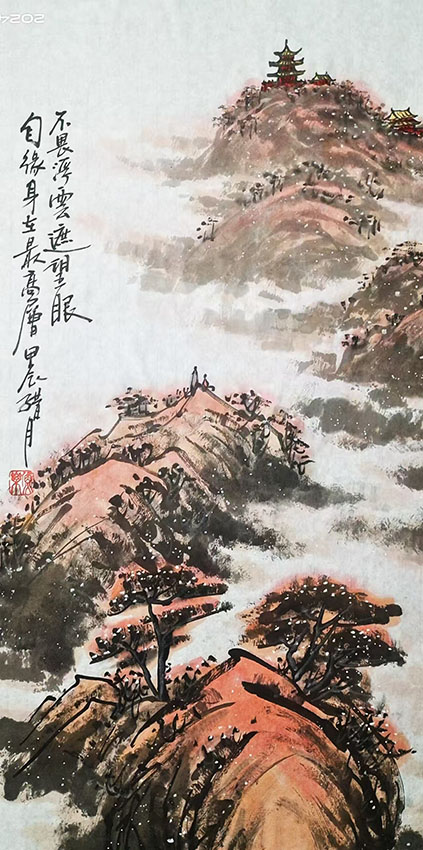 不畏浮雲遮望眼
自緣身在最高層 甲辰腊月